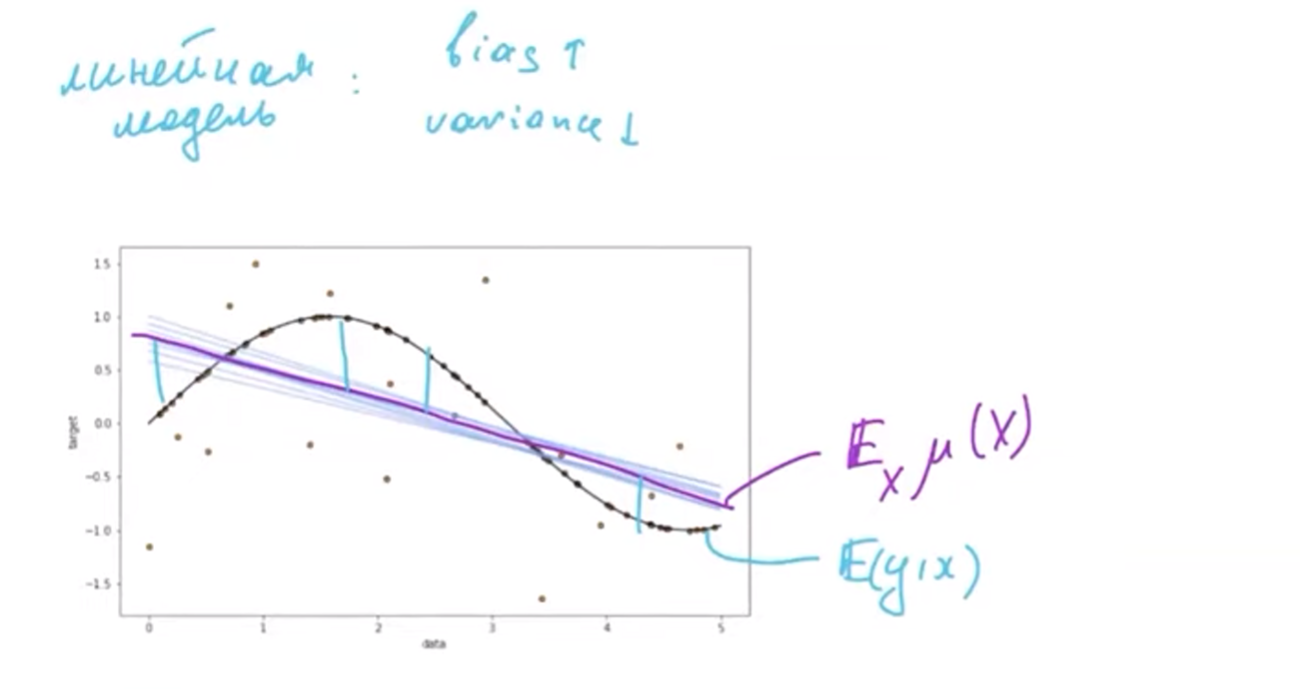 линейная : bias ↑
модель variance ↓
1.5
1.0
0.5
0.0
−0.5
−1.0
−1.5
target
0 1 2 3 4 5
data
𝔼ₓ μ(X)
𝔼(y|x)